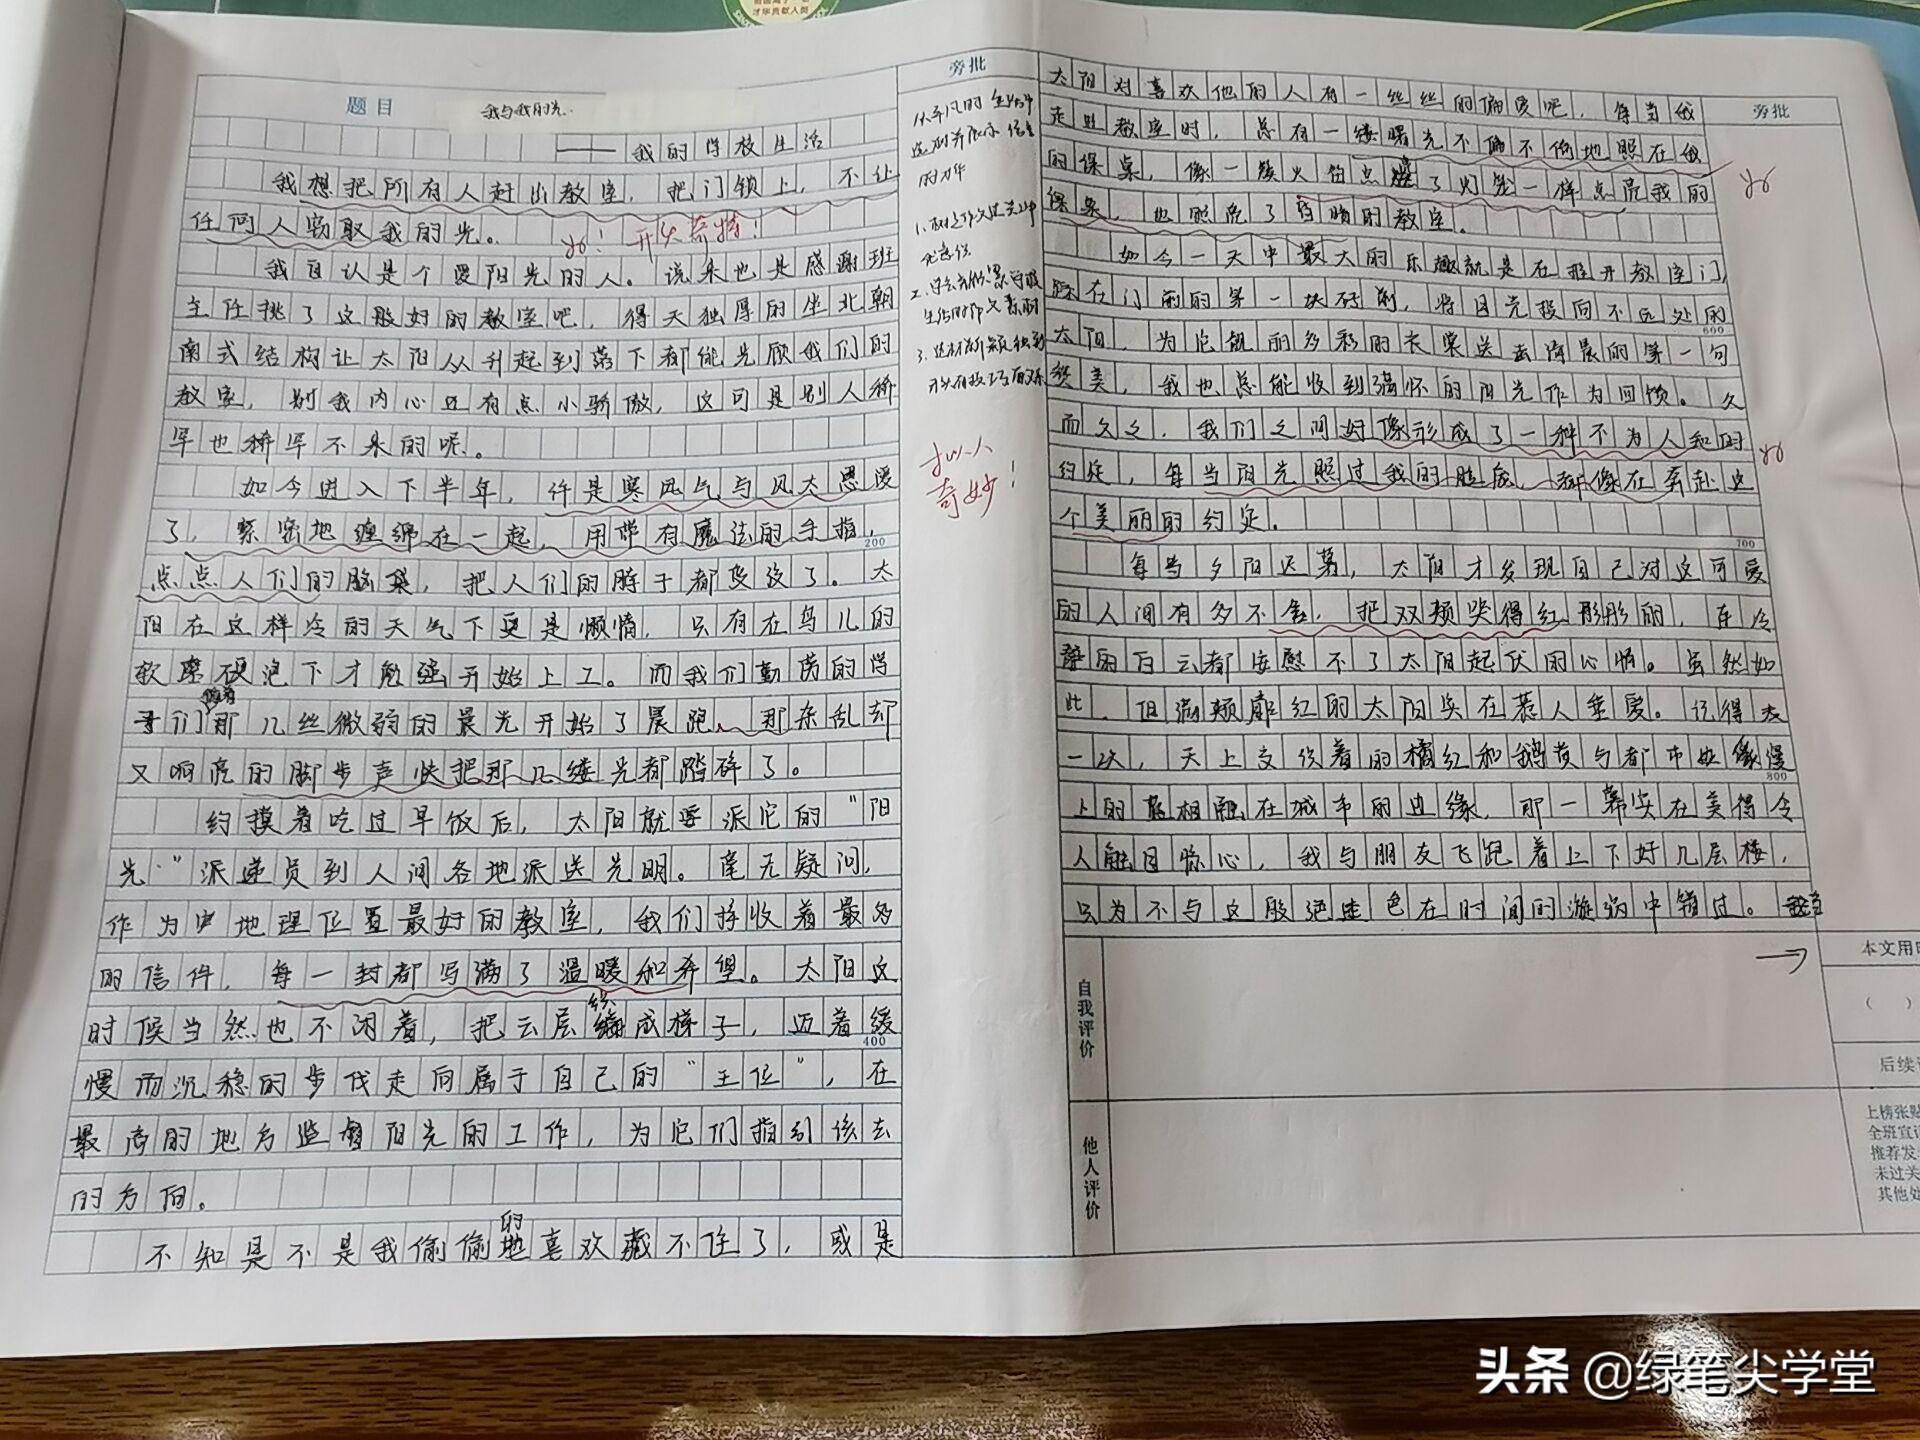 题目
我与我的光
——我的学校生活
我想把所有人赶出教室，把门锁上，不让
任何人窃取我的光。
开头奇特！
我自认是个爱阳光的人。说来也是感谢班
主任挑了这般好的教室吧，得天独厚的坐北朝
南式结构让太阳从升起到落下都能光顾我们的
教室，别我内心还有点小骄傲，这可是别人稀
罕也稀罕不来的呢。
如今进入下半年，许是寒风气与风太恩爱
了，紧密地缠绵在一起，用带有魔法的手指，
200
点点人们的脑袋，把人们的脖子都变没了。太
阳在这样冷的天气下更是懒惰，只有在鸟儿的
软磨硬泡下才勉强开始上工。而我们勤劳的学
子们 那几丝微弱的晨光开始了晨跑，那杂乱却
又响亮的脚步声快把那几缕光都踏碎了。
约摸着吃过早饭后，太阳就要派它的“阳
光”派递员到人间各地派送光明。毫无疑问，
作为 地理位置最好的教室，我们接收着最多
的信件，每一封都写满了温暖和希望。太阳这
时候当然也不闲着，把云层 成梯子，迈着缓
400
慢而沉稳的步伐走向属于自己的“王位”，在
最高的地方监督阳光的工作，为它们指引该去
的方向。
不知是不是我偷偷的喜欢藏不住了，或是
旁批
从平凡的生活中
1.
2.
3.
拟人
奇妙！
太阳对喜欢他的人有一丝丝的偏爱吧，每当我
走进教室时，总有一缕曙光不偏不倚地照在我
的课桌，像一簇火苗点燃了灯笼一样点亮我的
课桌，也照亮了昏暗的教室。
如今一天中最大的乐趣就是在推开教室门，
踩在门前的第一块砖前，将目光投向不远处的
600
太阳，为它靓丽多彩的衣裳送去清晨的第一句
赞美，我也总能收到满怀的阳光作为回馈。久
而久之，我们之间好像形成了一种不为人知的
约定，每当阳光照过我的脸庞，都像在奔赴这
个美丽的约定。
700
每当夕阳迟暮，太阳才发现自己对这可爱
的人间有多不舍，把双颊哭得红彤彤的，连冷
静的白云都安慰不了太阳起伏的心情。虽然如
此，但满颊 红的太阳实在惹人垂爱。记得有
一次，天上交织着的橘红和鹅黄与都市 慢
800
上的蓝相融在城市的边缘，那一幕实在美得令
人触目惊心，我与朋友飞跑着上下好几层楼，
只为不与这般绝色在时间的漩涡中错过。
旁批
自我评价
他人评价
本文用时
（ ）
后续
上榜张贴
全班宣
推荐发
未过关
其他处
头条 @绿笔尖学堂